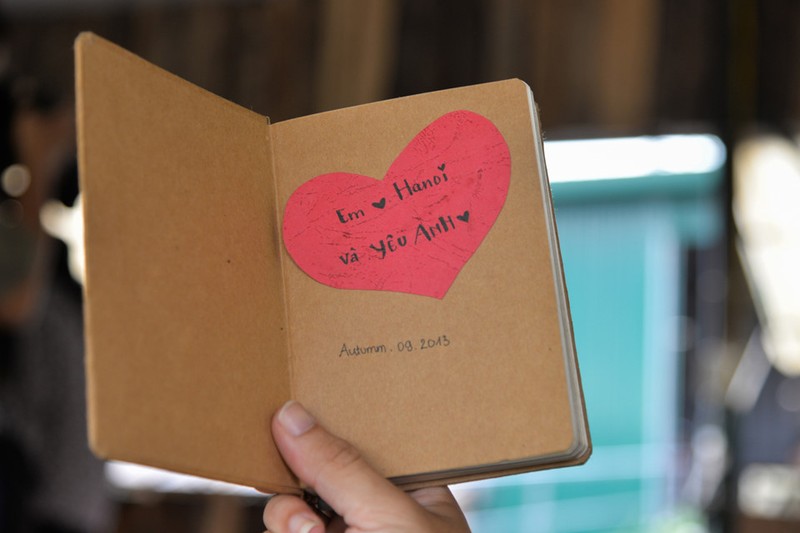 Em ♥ Hanoi
và yêu ANH ♥
Autumn . 09 . 2013